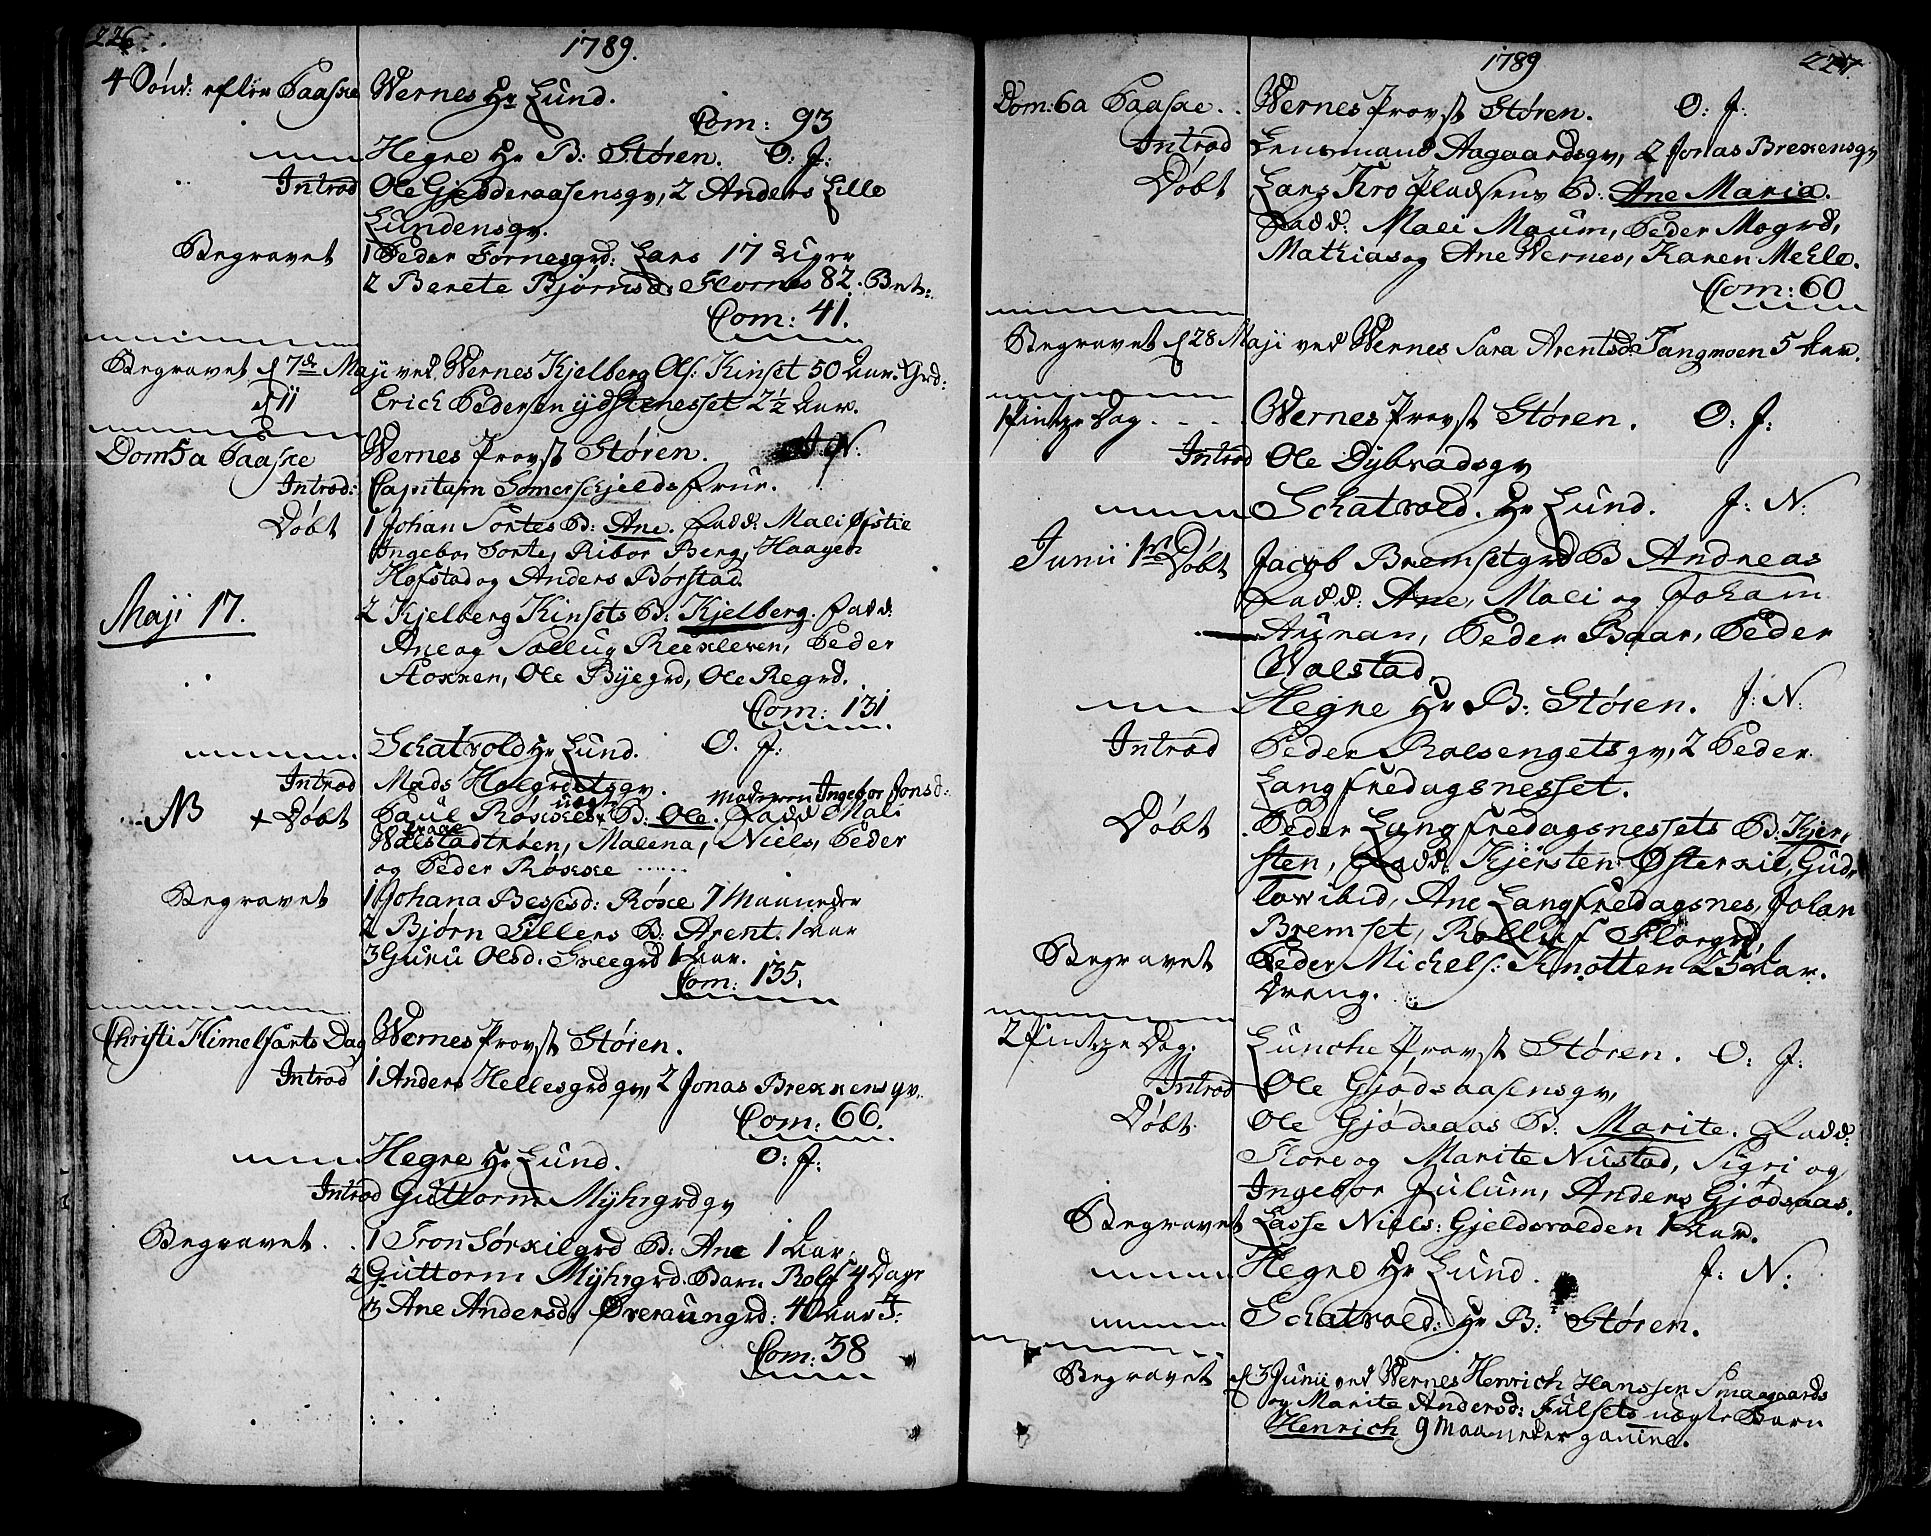 226.
1789.
4 Sönd: efter Paaske Wernes Hr Lund.
Com: 93
Hegre Hr B: Støren. O: J:
Introd Ole Gjødderaasensgv, 2 Anders Lille
Lundensgv.
Begravet 1 Peder Fornesgrd: Lars 17 Uger
2 Berete Bjørnsd: Flornes 82.
Com: 41.
Begravet d 7de Maji ved Wernes Kjelberg Ols: Kinset 50 Aar. Grd:
d 11 Erich Pedersen ydstenesset 2½ Aar.
Dom 5 a Paaske Wernes Provst Støren. J N:
Introd: Capitain Somerschjelds frue.
Døbt 1 Johan Sortes B: Ane. Fadd: Mali Øfstie
Ingebor Sorte, Ribor Berg, Haagen
Hofstad og Anders Børstad.
Maji 17.
2 Kjelberg Kinsets B: Kjelberg. Fadd:
Ane og Sollug Reekleren, Peder
Stokken, Ole Byegrd, Ole Regrd.
Com: 131
Schatvold Hr Lund. O. J:
Introd Mads Holgrdetsgv.
NB + Døbt Paul Røskes uægte B: Ole. Moderen Ingebor Jonsd: Fadd Mali
Walstadtrøen, Malena, Niels, Peder
og Peder Røske ......
Begravet 1 Johana Besesd: Røske 7 Maaneder
2 Bjørn Tillers B: Arent. 1 Aar
3 Guru Olsd. Greegrd 1 Aar.
Com: 135.
Christi Himelfarts Dag Wernes Provst Støren.
Introd 1 Anders Hellesgrdgv, 2 Jonas Brekkensgv.
Com: 66.
Hegre Hr Lund. O: J:
Introd Guttorm Myhrgrdgv
Begravet 1 Tron Sørkilgrd B: Ane 1 Aar.
2 Guttorm Myhrgrd: Barn Rolf 4 Dage
3 Ane Andersd: Øveraungrd: 40 Aar
Com: 38
1789
227.
Dom: 6 a Paaske. Wernes Provst Støren. O: J:
Introd Lensmand Aagaardsgv, 2 Jonas Brekensgv
Døbt Lars Kropladsens B: Ane Maria.
Fadd: Mali Maum, Peder Mogrd,
Mathias og Ane Wernes, Karen Mehle.
Com: 60
Begravet d 28 Maji ved Wernes Sara Arentsd: Tangmoen 5 Aar.
1 Pintze Dag.... Wernes Provst Støren. O: J:
Introd Ole Dybvadsgv
Schatvold. Hr Lund. J: N:
Junii 1ste Døbt Jacob Bremsetgrd B Andreas
Fadd: Ane, Mali og Joham
Aunan, Peder Baar, Peder
Walstad.
Hegre Hr B: Støren. J: N:
Introd Peder Rolsengetsgv, 2 Peder
Langfredagsnesset.
Døbt Peder Langfredagsnessets B: Kjer,
sten, Fadd: Kjersten Østerkil, Gud,
lov ibid, Ane Langfredagsnes, Johan
Bremset, Rolluf Florgrd,
Begravet Peder Michels: Knotten 25 Aar.
Dreng.
2 Pintze Dag. Lunche Provst Støren. O: J:
Introd Ole Gjødsaasensgv,
Døbt Ole Gjødsaas B: Marite. Fadd:
Tore og Marite Nustad, Sigri og
Ingebor Julum, Anders Gjødsaas.
Begravet Lasse Niels: Gjeldsvolden 1 Aar.
Hegre Hr Lund. J: N:
Schatvold: Hr B: Støren.
Begravet d 3 Junii ved Wernes Henrich Hanssen Smaagaards
og Marite Andersd: Fulsets uægte Barn
Henrich 9 Maaneder gamel.